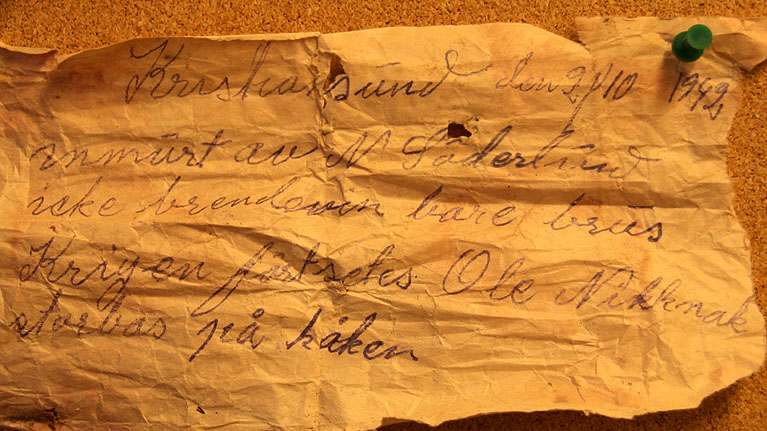 Kristiansund den 9/10 1942
inmurt av N Söderlund
icke brendevin bare brus
Krigen fortsetes Ole Nikknak
storbas på håken